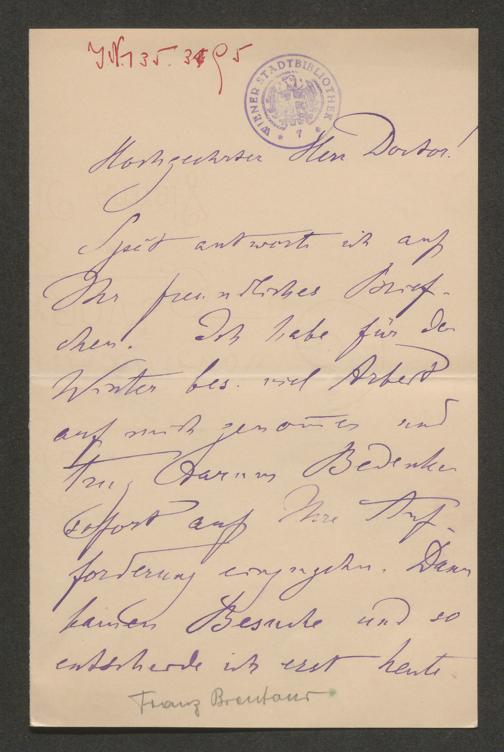 WIENER STADTBIBLIOTHEK
Hochgeehrter Herr Doctor!
Spät antworte ich auf
Ihr freundliches Brief-
chen. Ich habe für den
Winter bes. viel Arbeit
auf mich genom̄en und
trug darum Bedenken
sofort auf Ihre Auf-
forderung einzugehn. Dann
kamen Besuche und so
entscheide ich erst heute
Franz Brentano